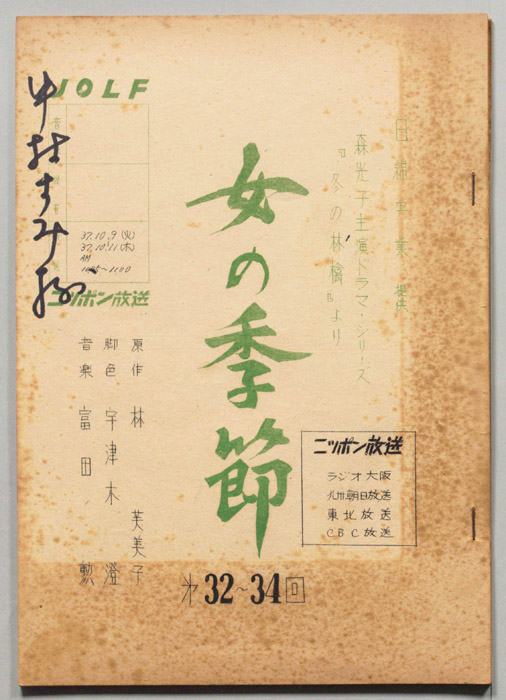 森光子主演ドラマ・シリーズ
『冬の林檎』より
女の季節
第32~34回
JOLF
37.10.9(火)
37.10.11(木)
AM
ニッポン放送
中村すみ様
原作 林 芙美子
脚色 宇津木 澄
音楽 富田 勲
ニッポン放送
ラジオ大阪
九州朝日放送
東北放送
CBC放送